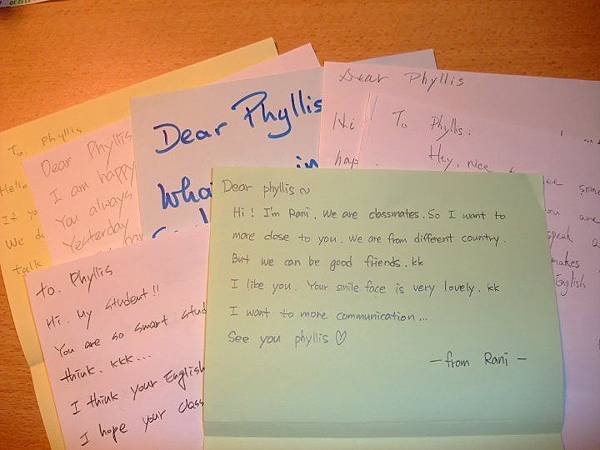 To Phyllis
Hello
If yo
We d
talk
Dear Phyllis
I am happy
You always
Yesterday
Dear Phyllis
Wha in
Dear Phyllis
Hi
hap
To Phyllis:
Hey, nice
see some
you are
speak a
makes
English
To. Phyllis
Hi. My student!!
You are so smart stud
think. kkk...
I think your English
I hope your class
Dear phyllis~
Hi! I'm Rani. We are classmates. So I want to
more close to you. We are from different country.
But we can be good friends. kk
I like you. Your smile face is very lovely. kk
I want to more communication...
See you phyllis ♡
- from Rani -